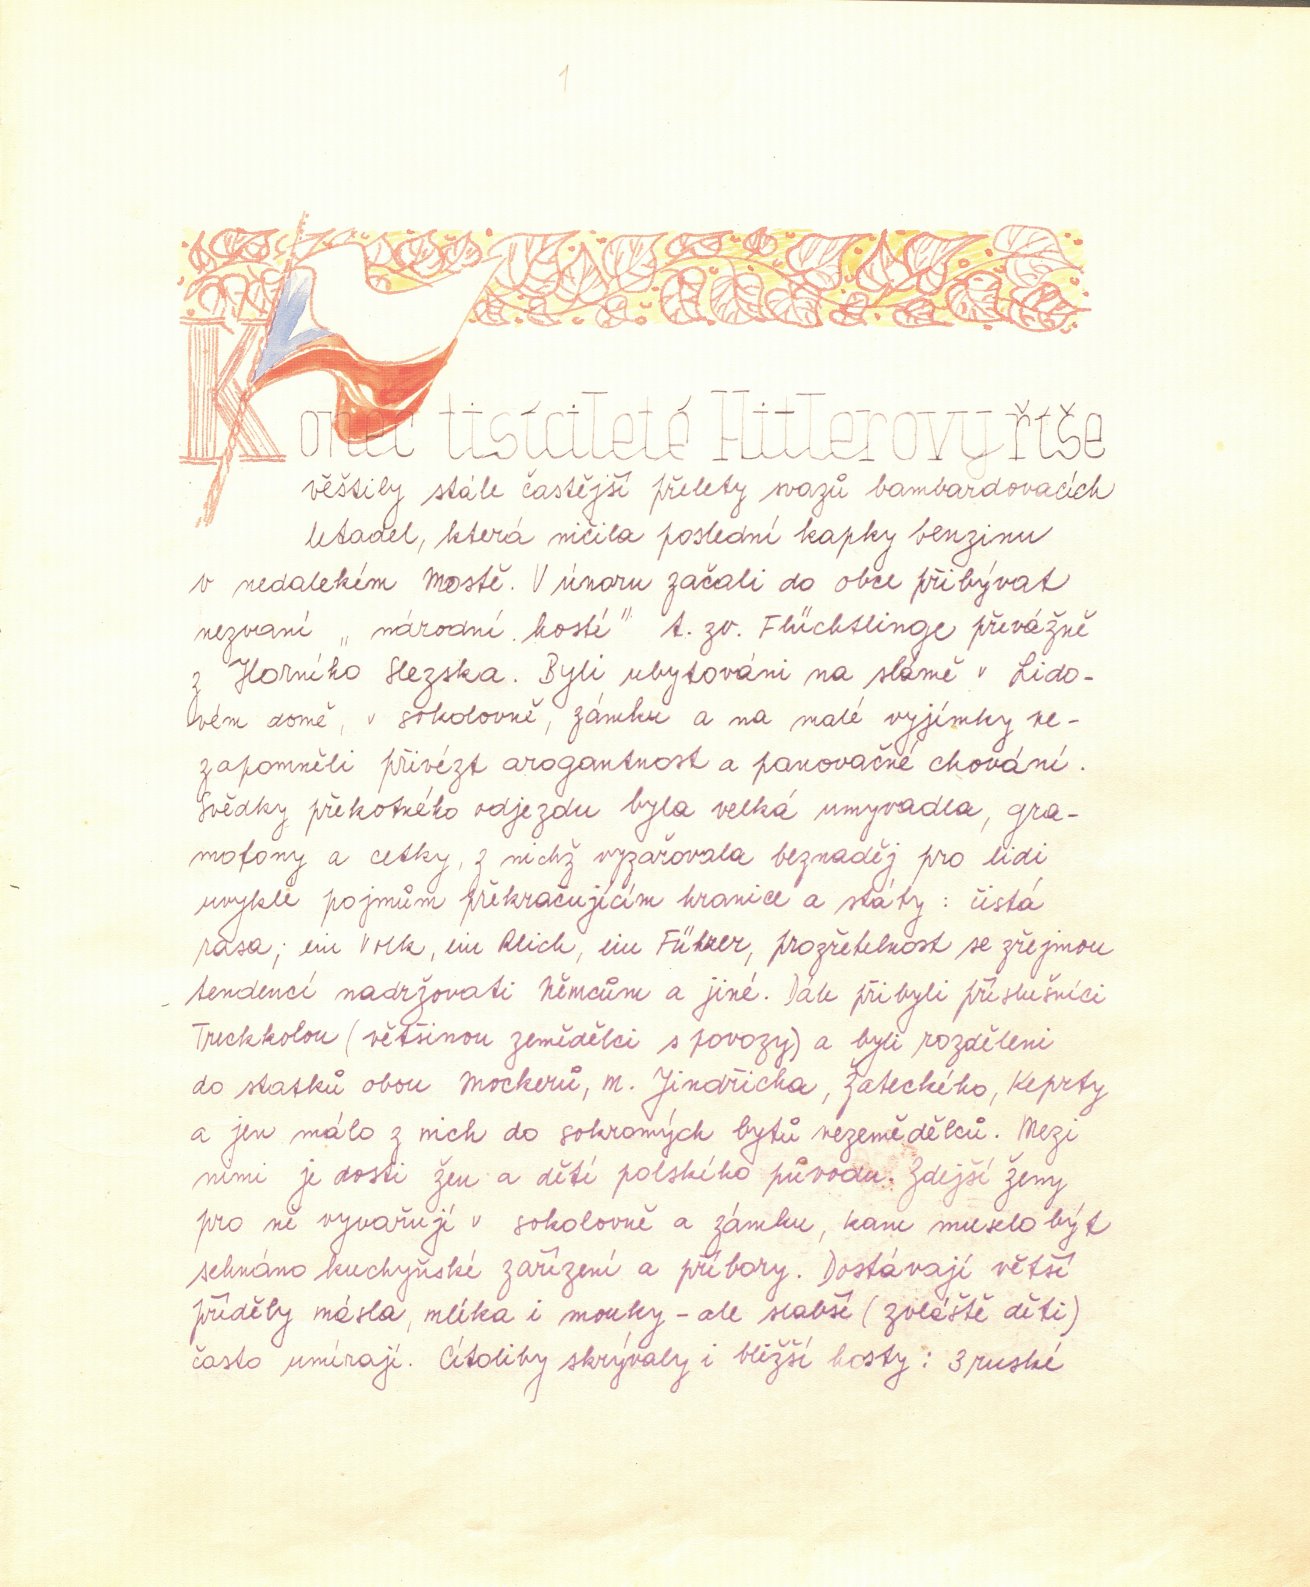 1
Konec tisícileté Hitlerovy říše
věštily stále častější přelety svazů bambardovacích
letadel, která ničila poslední kapky benzinu
v nedalekém Mostě. V únoru začali do obce přibývat
nezvaní „národní hosté" t. zv. Flüchtlinge převážně
z Horního Slezska. Byli ubytováni na slámě v Lido-
vém domě, v sokolovně, zámku a na malé vyjímky ne-
zapomněli přivézt arogantnost a panovačné chování.
Svědky překotného odjezdu byla velká umyvadla, gra-
mofony a cetky, z nichž vyzařovala beznaděj pro lidi
uvyklé pojmům překračujícím hranice a státy: čistá
rasa; ein Volk, ein Reich, ein Führer, prozřetelnost se zřejmou
tendencí nadržovati Němcům a jiné. Dále přibyli příslušníci
Treckkolon (většinou zemědělci s povozy) a byli rozděleni
do statků obou Mockerů, M. Jindřicha, Žateckého, Keprty
a jen málo z nich do sokromých bytů nezemědělců. Mezi
nimi je dosti žen a dětí polského původu. Zdejší ženy
pro ně vyvařují v sokolovně a zámku, kam muselo být
sehnáno kuchyňské zařízení a příbory. Dostávají větší
příděly másla, mléka i mouky - ale slabší (zvláště děti)
často umírají. Cítoliby skrývaly i bližší hosty: 3 ruské